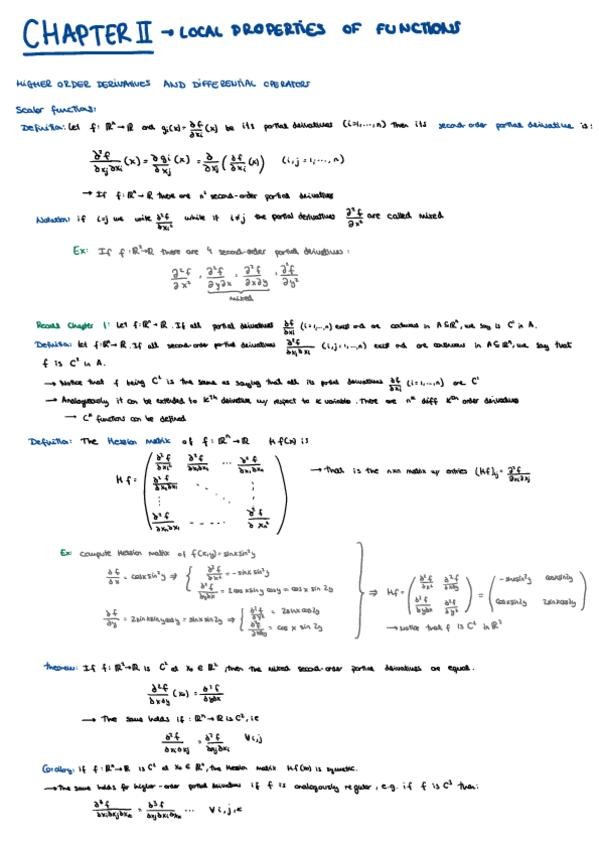 CHAPTER II → LOCAL PROPERTIES OF FUNCTIONS
HIGHER ORDER DERIVATIVES AND DIFFERENTIAL OPERATORS
Scalar functions:
Definition: Let f: ℝⁿ→ℝ and gᵢ(x) = ∂f/∂xᵢ (x) be its partial derivatives (i=1,...,n) Then its second-order partial derivative is:
∂²f/∂xⱼ∂xᵢ (x) = ∂gᵢ/∂xⱼ (x) = ∂/∂xⱼ (∂f/∂xᵢ (x)) (i,j = 1,...,n)
→ If f: ℝⁿ→ℝ there are n² second-order partial derivatives
Notation: if i=j we write ∂²f/∂xᵢ² while if i≠j the partial derivatives are called mixed
Ex: If f: ℝ²→ℝ there are 4 second-order partial derivatives:
∂²f/∂x², ∂²f/∂y∂x, ∂²f/∂x∂y, ∂²f/∂y²
mixed
Recall Chapter 1: Let f: ℝⁿ→ℝ. If all partial derivatives ∂f/∂xᵢ (i=1,...,n) exist and are continuous in A⊆ℝⁿ, we say is C¹ in A.
Definition: let f: ℝⁿ→ℝ. If all second-order partial derivatives ∂²f/∂xⱼ∂xᵢ (i,j=1,...,n) exist and are continuous in A⊆ℝⁿ, we say that
f is C² in A.
→ Notice that f being C² is the same as saying that all its partial derivatives ∂f/∂xᵢ (i=1,...,n) are C¹
→ Analogously it can be extended to kᵗʰ derivative w/ respect to k variable. There are nᵏ diff kᵗʰ order derivatives
→ Cᵏ functions can be defined
Definition: The Hessian matrix of f: ℝⁿ→ℝ Hf(x) is
Hf = ( ∂²f/∂x₁² ... ∂²f/∂xₙ² ) → that is the nxn matrix w/ entries (Hf)ᵢⱼ = ∂²f/∂xᵢ∂xⱼ
Ex: compute Hessian matrix of f(x,y) = sinx sin²y
∂f/∂x = cosx sin²y ⇒ { ∂²f/∂x² = -sinx sin²y
∂²f/∂y∂x = 2cosx siny cosy = cosx sin2y
⇒ Hf = ( ∂²f/∂x² ∂²f/∂x∂y ; ∂²f/∂y∂x ∂²f/∂y² ) = ( -sinxsin²y cosxsin2y ; cosxsin2y 2sinxcos2y )
∂f/∂y = 2sinxsinycosy = sinx sin2y ⇒ { ∂²f/∂y² = 2sinx cos2y
∂²f/∂x∂y = cosx sin2y
→ Notice that f is C² in ℝ²
Theorem: If f: ℝ²→ℝ is C² at x₀ ∈ ℝ², then the mixed second-order partial derivatives are equal.
∂²f/∂x∂y (x₀) = ∂²f/∂y∂x
→ The same holds if: ℝⁿ→ℝ is C², i.e
∂²f/∂xᵢ∂xⱼ = ∂²f/∂xⱼ∂xᵢ ∀i,j
Corollary: if f: ℝⁿ→ℝ is C² at x₀ ∈ ℝⁿ, the Hessian matrix Hf(x₀) is symmetric.
→ The same holds for higher-order partial derivatives if f is analogously regular, e.g. if f is C³ then:
∂³f/∂xᵢ∂xⱼ∂xₖ = ∂³f/∂xⱼ∂xᵢ∂xₖ ... ∀i,j,k